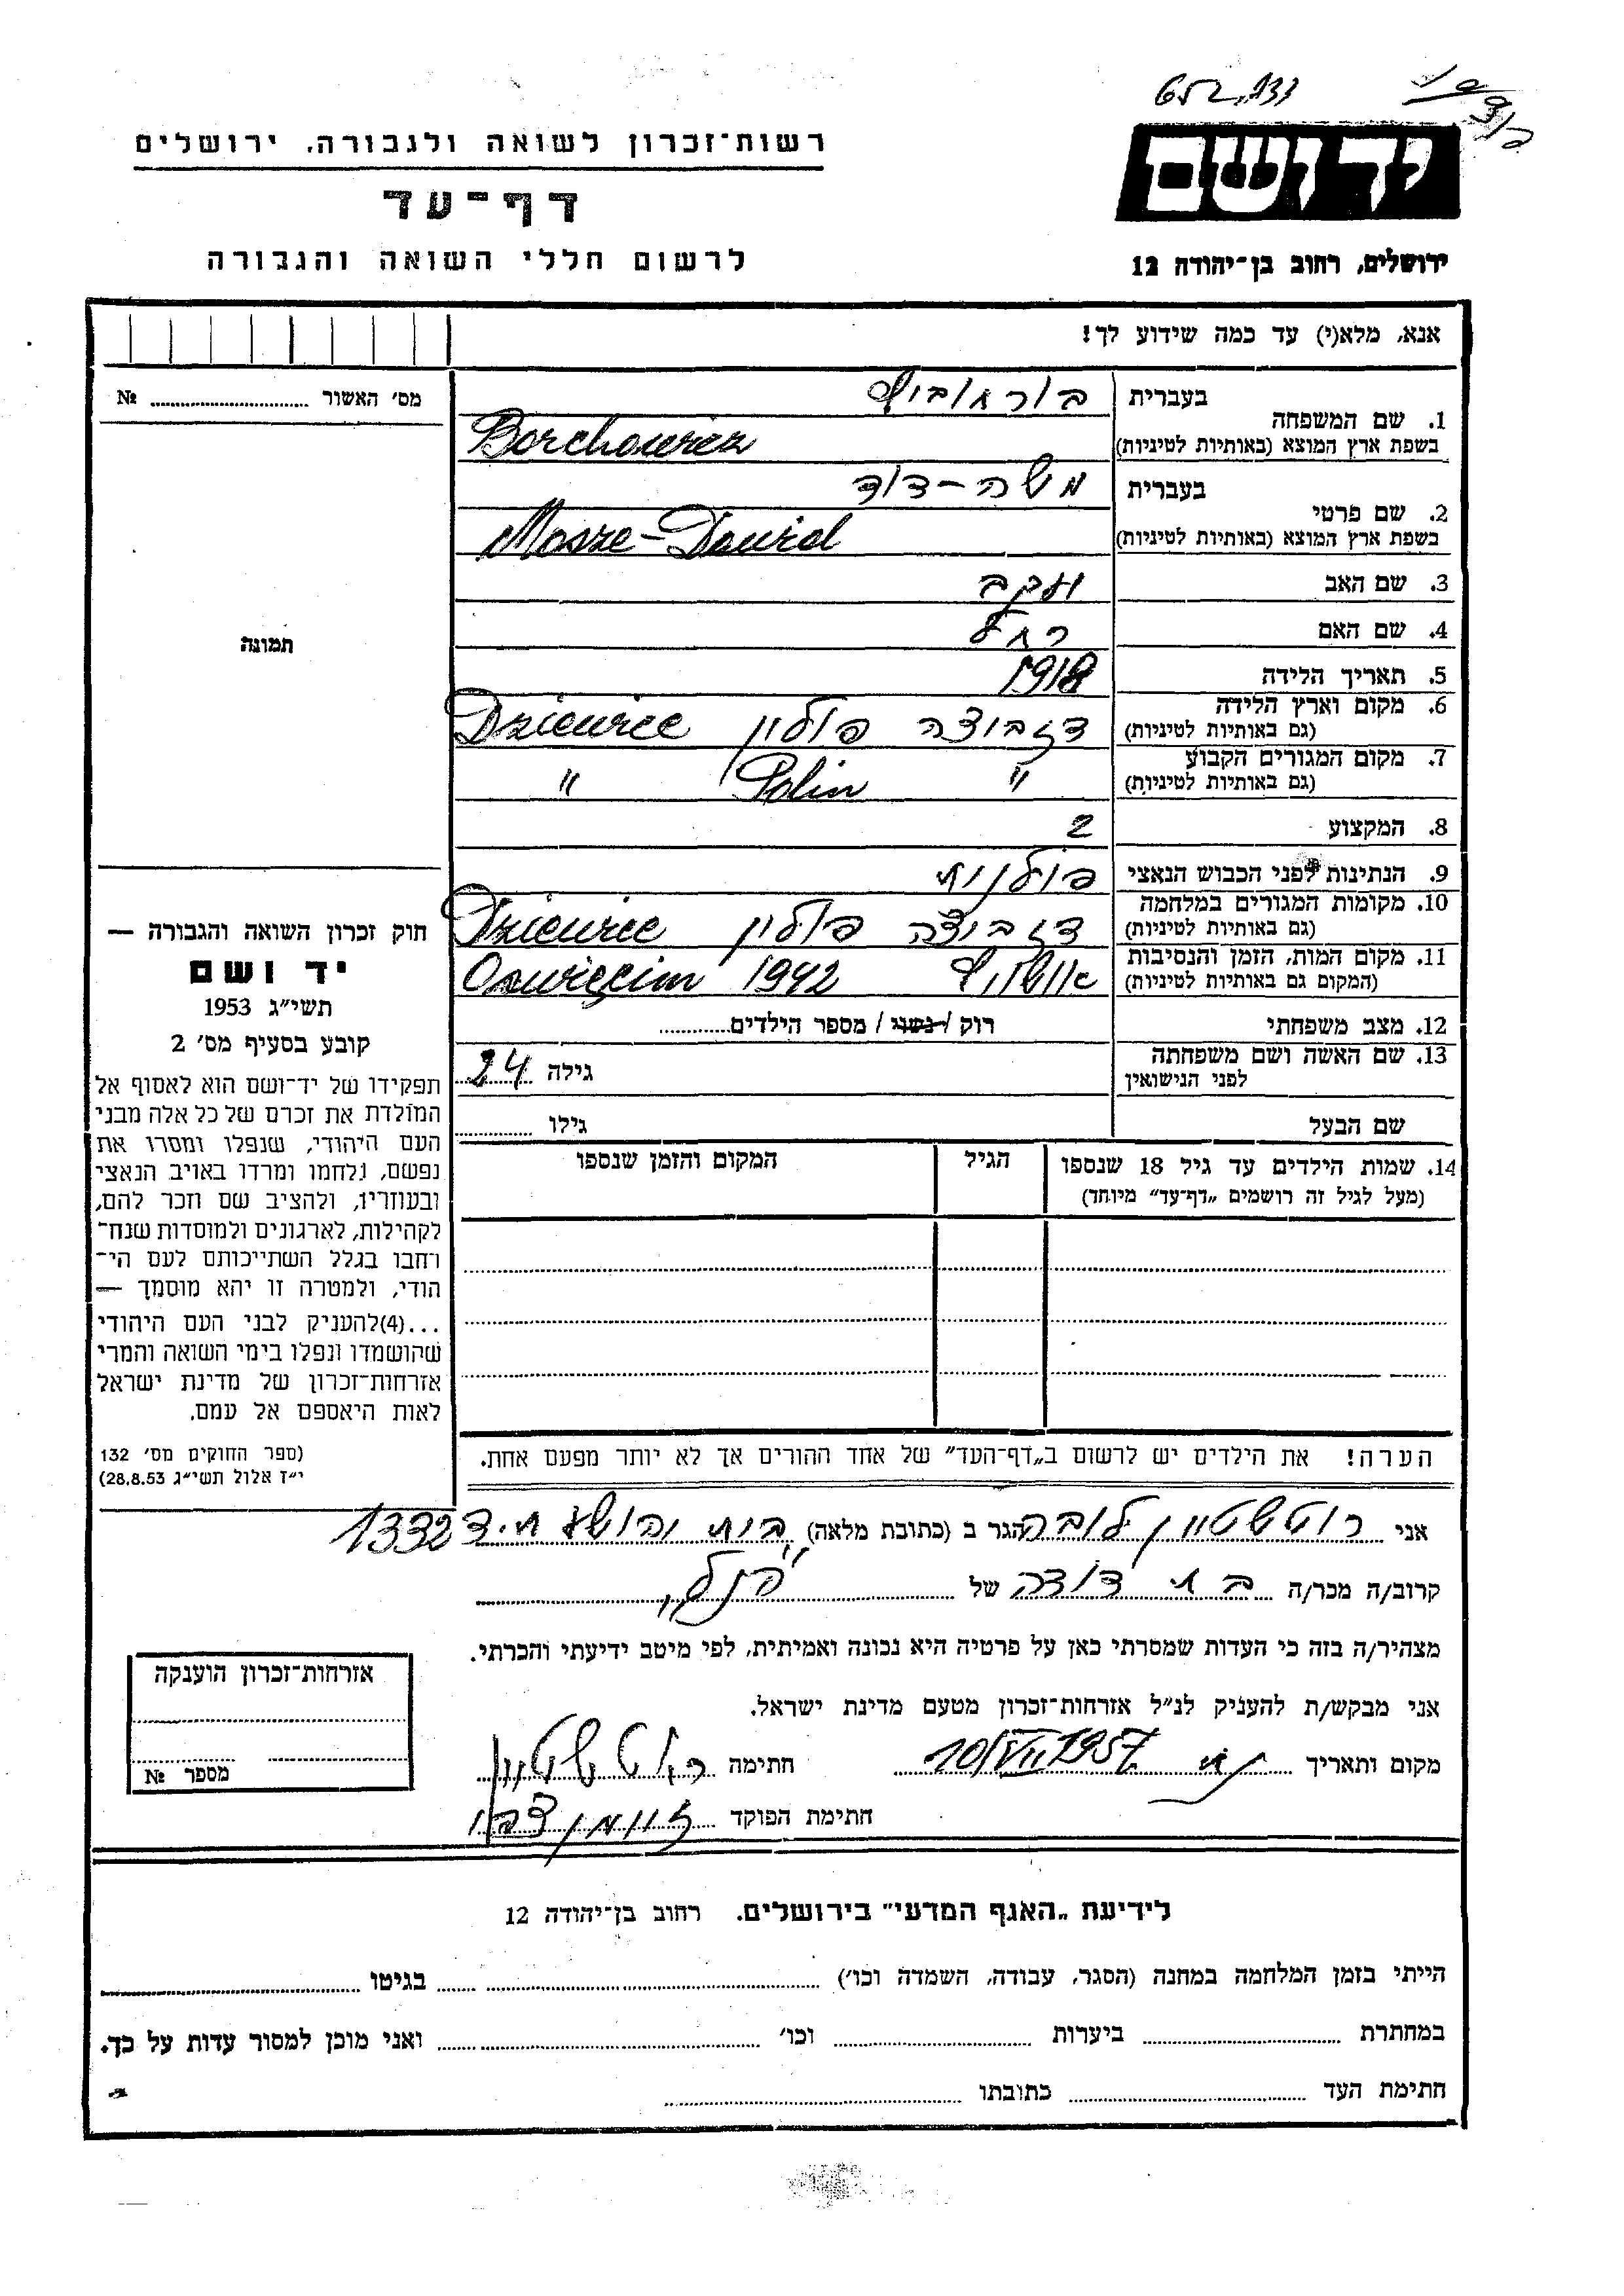 רשות־זכרון לשואה ולגבורה, ירושלים
דף־עד
לרשום חללי השואה והגבורה
יד ושם
ירושלים, רחוב בן־יהודה 12
אנא, מלא(י) עד כמה שידוע לך!
מס׳ האשור № ........
תמונה
1. שם המשפחה
בעברית בוראוביץ
בשפת ארץ המוצא (באותיות לטיניות) Borchowicz
2. שם פרטי
בעברית משה-דוד
בשפת ארץ המוצא (באותיות לטיניות) Mosze-Dawid
3. שם האב יעקב
4. שם האם רחל
5. תאריך הלידה 1918
6. מקום וארץ הלידה
(גם באותיות לטיניות) דזביצה פולין Dziewice
7. מקום המגורים הקבוע
(גם באותיות לטיניות) " Polin "
8. המקצוע
9. הנתינות לפני הכבוש הנאצי פולנית
10. מקומות המגורים במלחמה
(גם באותיות לטיניות) דזביצה פולין Dziewice
11. מקום המות, הזמן והנסיבות
(המקום גם באותיות לטיניות) אושויץ Oswięcim 1942
12. מצב משפחתי רוק / נשוי / מספר הילדים........
13. שם האשה ושם משפחתה
לפני הנישואין גילה 24
שם הבעל גילו ........
14. שמות הילדים עד גיל 18 שנספו
(מעל לגיל זה רושמים „דף־עד״ מיוחד)
הגיל
המקום והזמן שנספו
הערה! את הילדים יש לרשום ב„דף־העד״ של אחד ההורים אך לא יותר מפעם אחת.
חוק זכרון השואה והגבורה —
יד ושם
תשי״ג 1953
קובע בסעיף מס׳ 2
תפקידו של יד־ושם הוא לאסוף אל
המולדת את זכרם של כל אלה מבני
העם היהודי, שנפלו ומסרו את
נפשם, נלחמו ומרדו באויב הנאצי
ובעוזריו, ולהציב שם וזכר להם,
לקהילות, לארגונים ולמוסדות שנח־
רחבו בגלל השתייכותם לעם הי־
הודי, ולמטרה זו יהא מוסמך —
...(4)להעניק לבני העם היהודי
שהושמדו ונפלו בימי השואה והמרי
אזרחות־זכרון של מדינת ישראל
לאות היאספם אל עמם.
(ספר החוקים מס׳ 132
י״ז אלול תשי״ג 28.8.53)
אני רוטשטיין לובה הגר ב (כתובת מלאה) בית יהושע ת.ד 1332
קרוב/ה מכר/ה בת דודה של הנ"ל
מצהיר/ה בזה כי העדות שמסרתי כאן על פרטיה היא נכונה ואמיתית, לפי מיטב ידיעתי והכרתי.
אני מבקש/ת להעניק לנ״ל אזרחות־זכרון מטעם מדינת ישראל.
מקום ותאריך 10/VII 1957 חתימה רוטשטיין
חתימת הפוקד
אזרחות־זכרון הוענקה
מספר №
לידיעת „האגף המדעי״ בירושלים. רחוב בן־יהודה 12
הייתי בזמן המלחמה במחנה (הסגר, עבודה, השמדה וכו׳) ........ בגיטו ........
במחתרת ........ ביערות ........ וכו׳ ........ ואני מוכן למסור עדות על כך.
חתימת העד ........ כתובתו ........